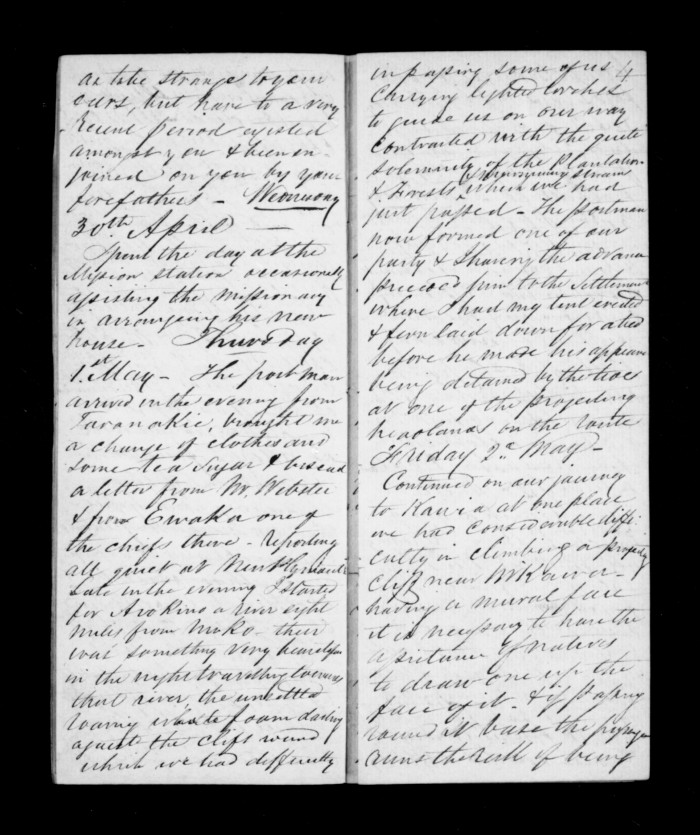 as take strange to your
ears, but have to a very
recent period existed
amongst you & been en-
joined on you by your
forefathers - Wednesday
30th April -
Spent the day at the
Mission station occasionally
assisting the missionary
in arrangeing his new
house - Thursday
1st May - The postman
arrived in the evening from
Taranakie, brought me
a change of clothes and
some tea Sugar &
a letter from Mr. Webster
& from Ewaka one of
the chiefs there - reporting
all quiet at New Plymouth
Late in the evening I started
for Awakino a river eight
miles from Moko - there
was something very beautiful
in the night travelling towards
that river, the unsettled
roaring foam dashing
against the clifs round
which we had difficulty
in passing some of us 4
Carrying lighted torches
to guide us on our way
contrasted with the quiet
solemnity of the Plantation
& Forests & stream
which we had
just passed - The postman
now formed one of our
party & the advance
preceeded him to the Settlement
where I had my tent erected
& fern laid down for a bed
before he made his appearance
being detained by the tide
at one of the projecting
headlands on the route
Friday 2d. May -
Continued on our journey
to Kawia at one place
we had considerable diffi
culty in climbing a projecting
Cliff near
having a mural face
it is necessary to have the
assistance of natives
to draw one up the
face of it - & if passing
round it base the
runs the risk of being